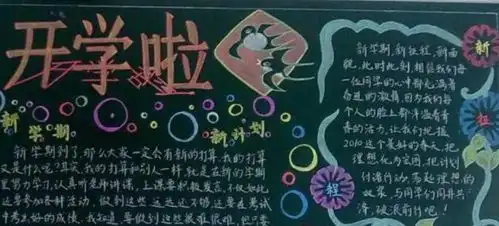 开学啦
新学期 新计划
新学期到了,那么大家一定会有新的打算,我的打算
又是什么呢?其实,我的打算和别人一样,就是在新的学期
里努力学习,认真听老师讲课,上课要积极发言,不仅如此
还要参加各种活动,做到这些还远远不够,还要在考试
中考出好的成绩,我知道,要做到这些很难很难,但只要
新学期,新征程,新面
貌,此时此刻,相信我们每
一位同学的心中都充满着
奋进的激情,因为我们每
个人的脸上都洋溢着青
春的活力,让我们把握
2010这个美好的春天,把
理想化为宏图,把计划
付诸行动,荡起理想的
双桨,与同学们同舟共
济,破浪前行吧!
新
征
程